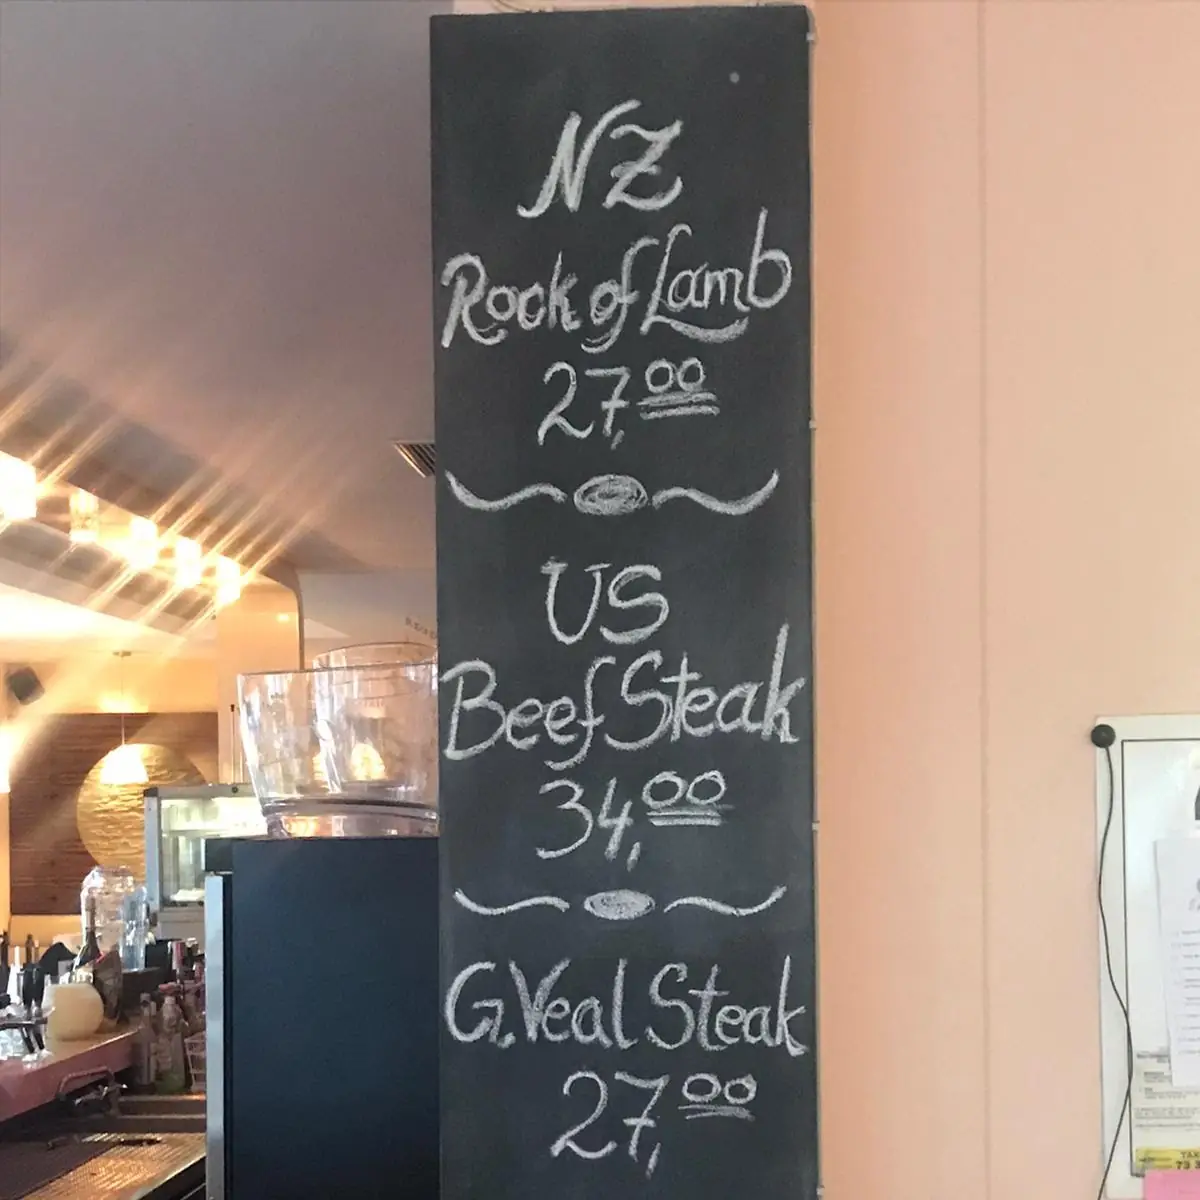 NZ
Rock of Lamb
27,00
US
Beef Steak
34,00
G. Veal Steak
27,00